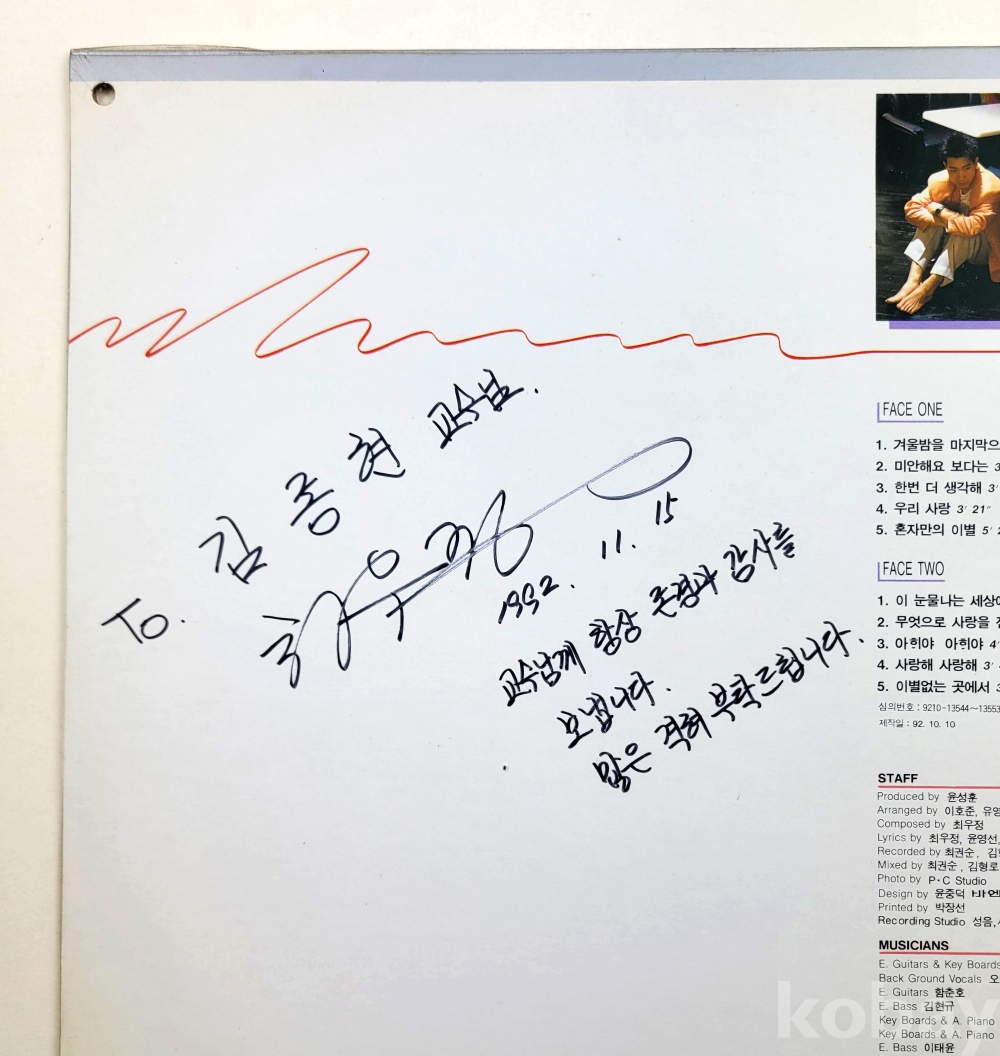 To. 김종현 교수님.
최우정
1992. 11. 15
교수님께 항상 존경과 감사를
보냅니다.
많은 격려 부탁드립니다.
FACE ONE
1. 겨울밤을 마지막으
2. 미안해요 보다는 3
3. 한번 더 생각해 3'
4. 우리 사랑 3' 21"
5. 혼자만의 이별 5' 2
FACE TWO
1. 이 눈물나는 세상에
2. 무엇으로 사랑을
3. 아휘야 아휘야 4'
4. 사랑해 사랑해 3'
5. 이별없는 곳에서 3
심의번호 : 9210-13544~13553
제작일 : 92. 10. 10
STAFF
Produced by 윤성훈
Arranged by 이호준, 유영
Composed by 최우정
Lyrics by 최우정, 윤영선,
Recorded by 최권순, 김
Mixed by 최권순, 김형로
Photo by P·C Studio
Design by 윤중덕
Printed by 박장선
Recording Studio 성음,
MUSICIANS
E. Guitars & Key Boards
Back Ground Vocals 오
E. Guitars 함춘호
E. Bass 김현규
Key Boards & A. Piano
Key Boards & A. Piano
E. Bass 이태윤